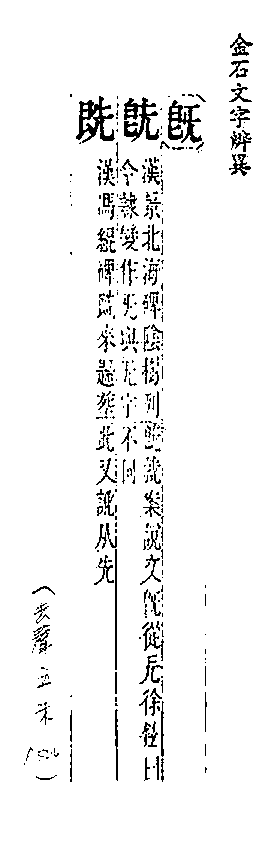 金石文字辨異
旣
旣
漢景北海碑陰樹列旣就案說文旣從旡徐鉉曰
今隸變作旡與无字不同
既
漢馮緄碑既來遷塋此又訛从先
(去聲五未